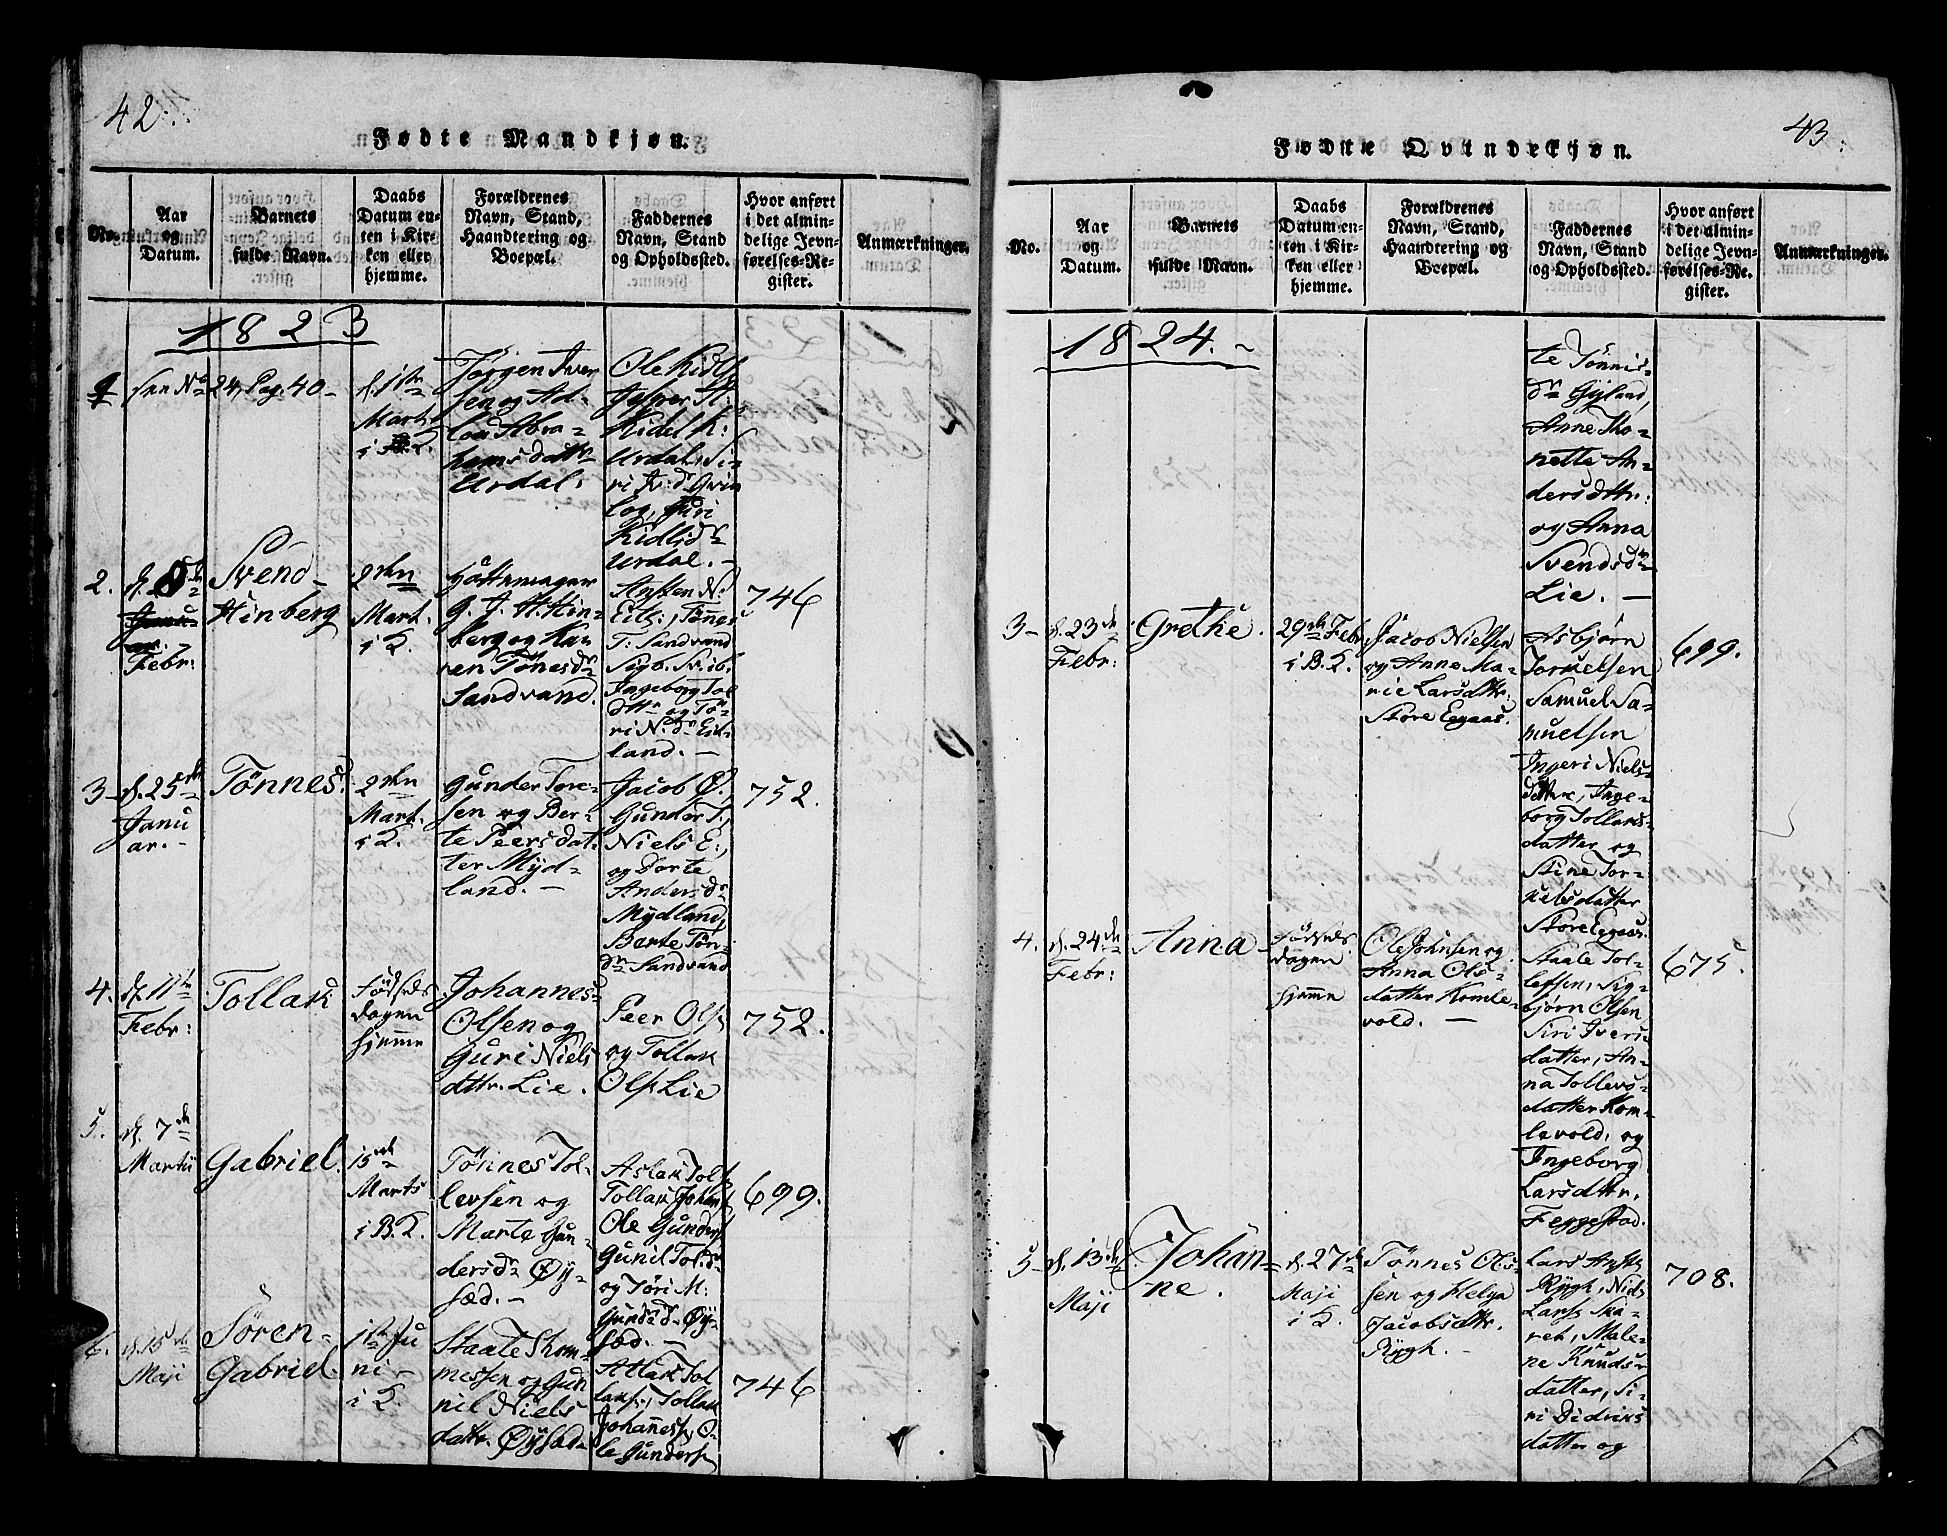 42.
Fødte Mandkjøn.
No.
Aar
og
Datum.
Barnets
fulde Navn.
Daabs
Datum en-
ten i Kir-
ken eller
hjemme.
Forældrenes
Navn, Stand,
Haandtering og
Boepæl.
Faddernes
Navn, Stand
og Opholdssted.
Hvor anført
i det almin-
delige Jevn-
førelses-Re-
gister.
Anmærkninger.
1823
No 24, Pag. 40-
Mart.
Jørgen Iver
sen og
Abra-
hams datt
Urdal.
Urdal. -
2.
Febr:
Svend
Hinberg
Mart.
i K.
ren Tønesdr
Sandvand.
T: Sandvand
Ingeborg Tol
land. -
746
3-
d. 25de
Janu
ar. -
Tønnes.
Mart.
i K.
Gunder Tore-
sen og Ber-
te Peersdat
ter Myd-
land. -
Jacob Ø.
Gunder T.,
Niels E:,
og Dorte
Andersdr
Mydland,
Berte Tøn-
dr Sandvand
752.
4.
d. 11te
Febr:
Tollak
Fødseds
dagen
hjemme
Johannes
Olsen og
Guri Niels
dttr. Lie.
Peer Ols
og Tollak
Ols Lie
752.
5.
d. 7de
Martii
Gabriel.
15de
Marts
i B.K.
Tønnes Tol-
levsen og
Marte Gun-
dersdr Øy-
sæd. -
Aslak Tols
Tollak Johans
Ole Gunders
Gunil Tol.dr
og Tøri M:
sæd. -
699.
6.
d. 15de
Maji
Søren
Gabriel.
1te Ju
ni -
i K.
Staale Thom-
mesen og Gun
nil Niels
dattr. Øysæd-
Tollak
Johanness, O-
le Gunders
746
43.
Fødte Qvindekjøn.
No.
Aar
og
Datum.
Barnets
fulde Navn.
Daabs
Datum en-
ten i Kir-
ken eller
hjemme.
Forældrenes
Navn, Stand,
Haandtering og
Boepæl.
Faddernes
Navn, Stand
og Opholdssted.
Hvor anført
i det almin-
delige Jevn-
førelses-Re-
gister.
Anmærkninger.
1824. -
te Tønnis-
dr Gyland,
Anne Tho-
nette An-
ders dttr:
og Anna
Svendsdr
Lie. -
3-
d. 23de
Febr:
Grethe.
29de Febr
i B.K.
Jacob Nielsen
og Anne Ma-
rie Larsdttr:
Store Egaas.
Asbjørn
Torkelsen
Samuel Sa-
muelsen
Ingeri Niels-
datter, Inge-
borg Tollaks-
datter og
Stine Tor-
kelsdatter
Store Egaas.
699.
4.
d. 24de
Febr:
Anna
Fødseds
dagen
hjemme
Ole Johnsen og
Anna Ols-
datter Komle-
vold. -
Staale Tol-
lefsen, Sig-
bjørn Olsen
Siri Ivers
datter, An-
na Tollevs-
datter Kom-
levold, og
Ingeborg
Larsdttr.
Feggestad.
675.
5-
d. 13de
Maji
Johan-
ne.
d. 27de
Maji
i K.
Tønnes Ol-
sen og Helga
Jacobsdttr.
Rygh. -
Rygh, Niels
Lars Ska-
ret, Male-
ne Knuds-
datter, Si-
ri Didriks
datter og
708.